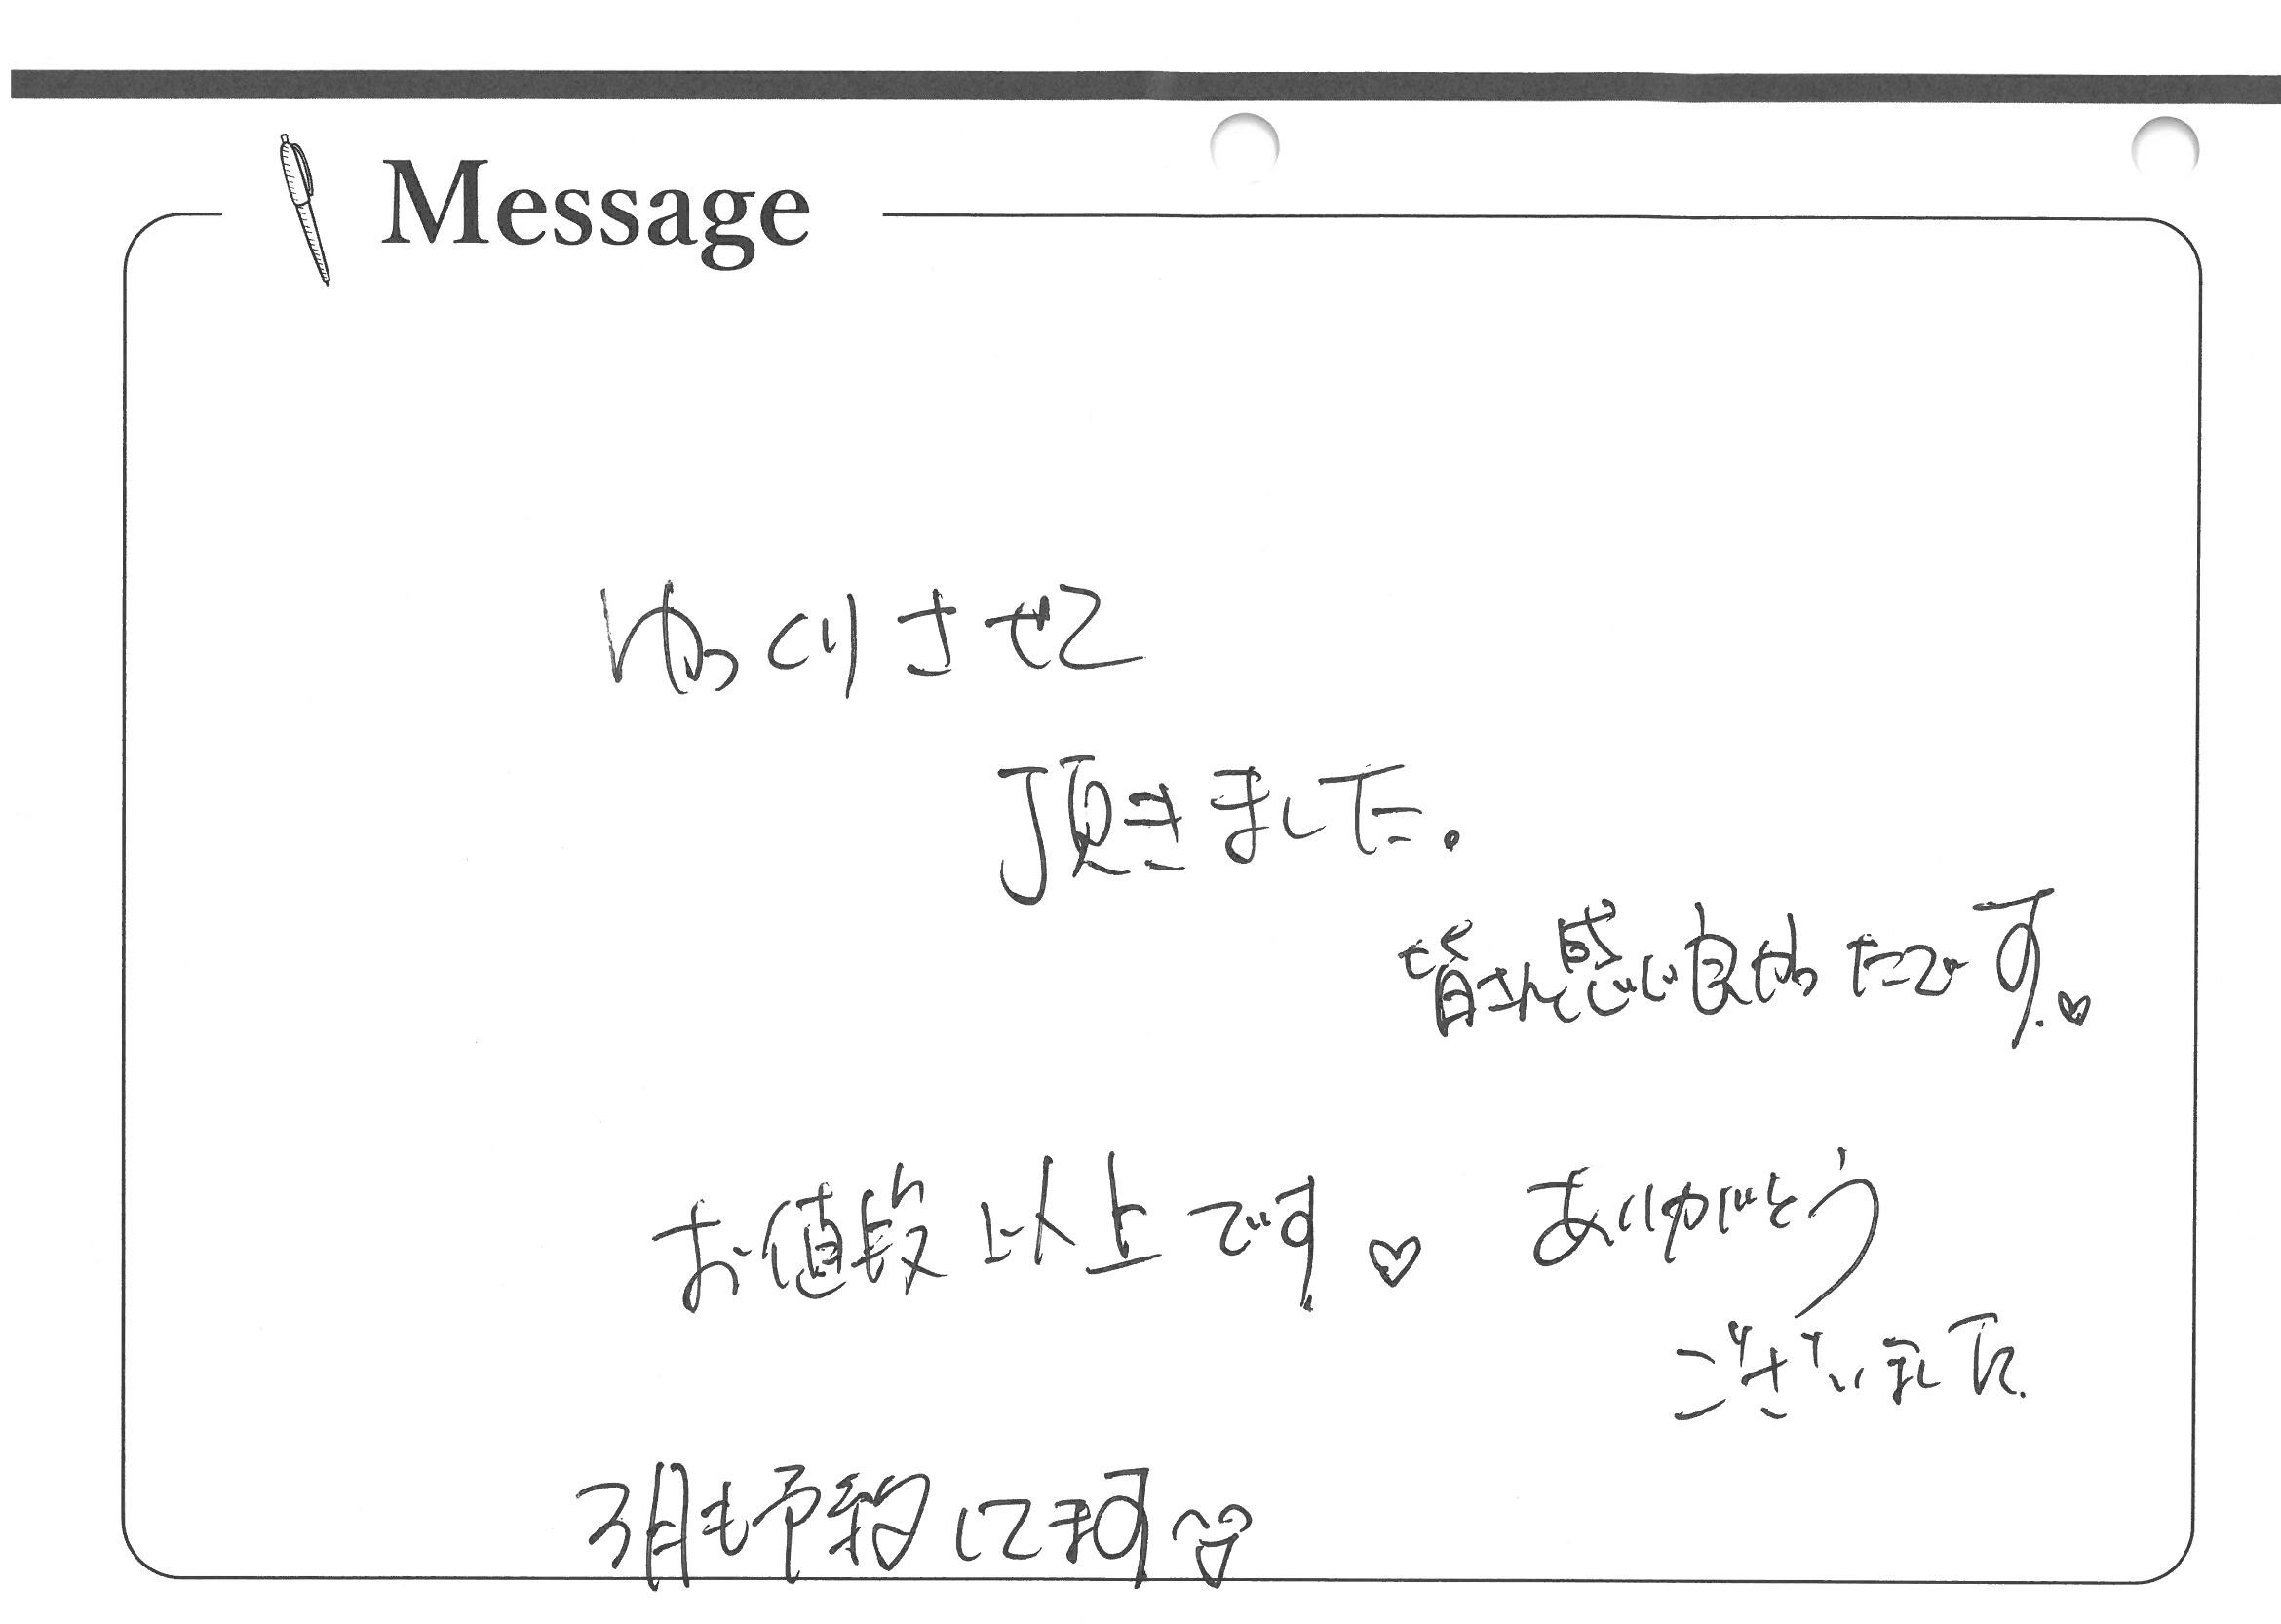 Message
ゆっくりさせて
頂きました.
皆さん感じ良かったです.♡
お値段以上です♡
ありがとう
ございました.
3月も予約してます